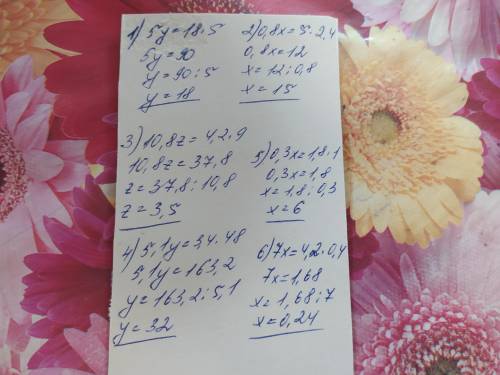 1) 5y=18·5
5y=90
y=90:5
y=18
2) 0,8x=5·2,4
0,8x=12
x=12:0,8
x=15
3) 10,8z=4,2·9
10,8z=37,8
z=37,8:10,8
z=3,5
4) 5,1y=3,4·48
5,1y=163,2
y=163,2:5,1
y=32
5) 0,3x=1,8·1
0,3x=1,8
x=1,8:0,3
x=6
6) 7x=4,2·0,4
7x=1,68
x=1,68:7
x=0,24